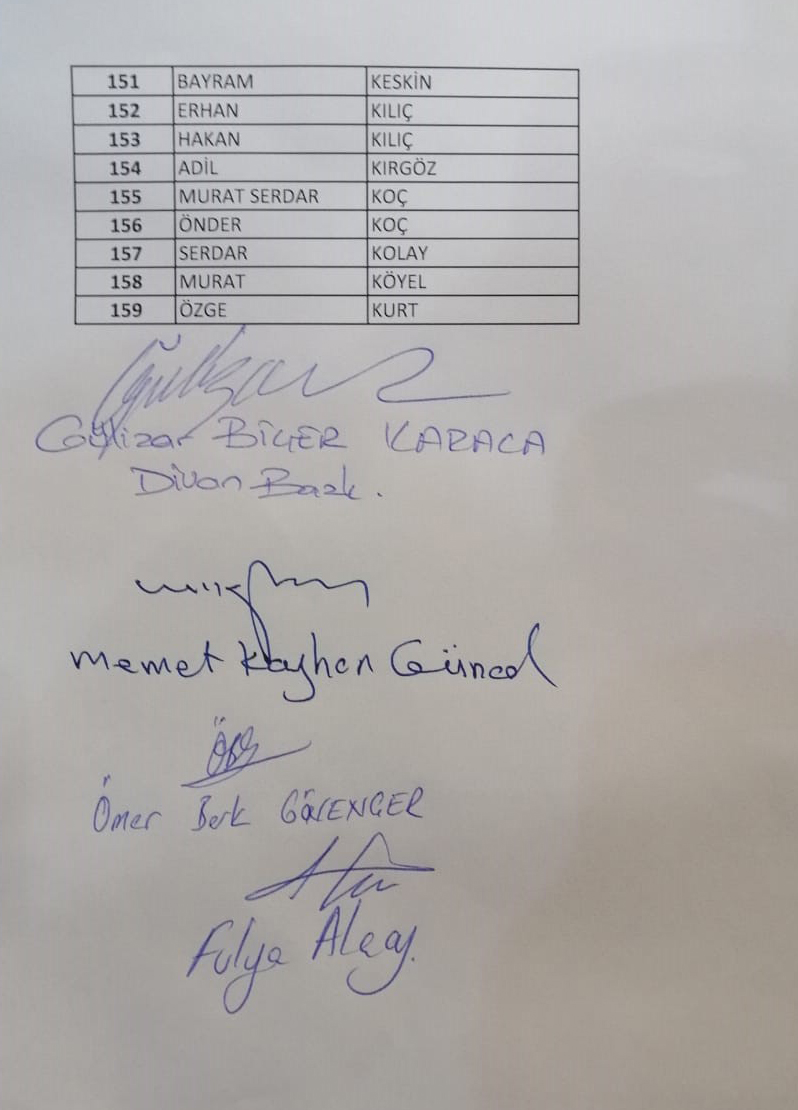 151 BAYRAM KESKİN
152 ERHAN KILIÇ
153 HAKAN KILIÇ
154 ADİL KIRGÖZ
155 MURAT SERDAR KOÇ
156 ÖNDER KOÇ
157 SERDAR KOLAY
158 MURAT KÖYEL
159 ÖZGE KURT
Gülizar BİÇER KARACA
Divan Başk.
Memet Kayhan
Ömer Berk
Fulya